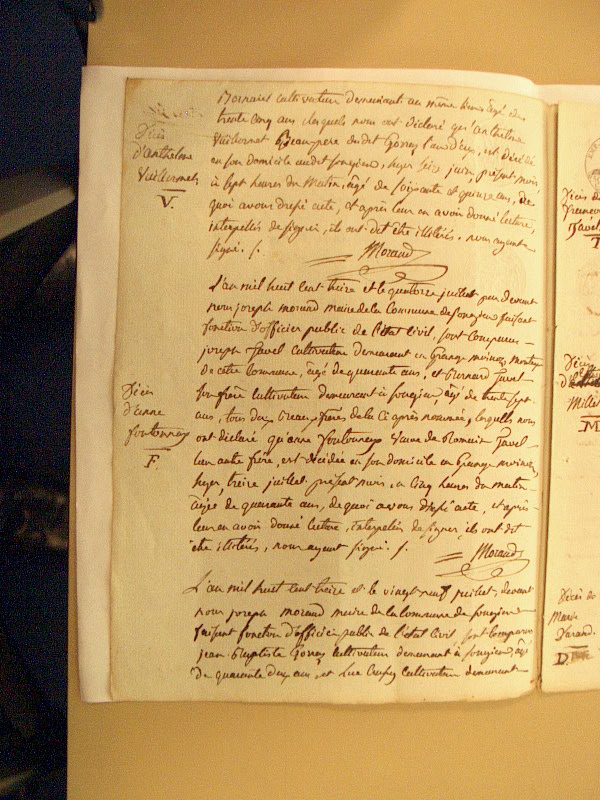 cultivateur demeurant au même lieu âgé de
trente cinq ans lesquels nous ont déclaré qu'anthelme
Vuillermet Beau-pere dudit Gonny est décédé
en son domicile audit songieu, hyer seize juin, présent mois,
à sept heures du matin, âgé de soixante et quinze ans, de
quoi avons dressé acte, et après leur en avoir donné lecture,
interpellés de signer, ils ont dit être illitérés, nous ayant
signé. /.
Morand
Décès
d'anthelme
Vuillermet
V.
L'an mil huit cent treize et le quatorze juillet par devant
nous joseph morand maire de la Commune de songieu faisant
fonction d'officier public de l'état civil, sont comparus
joseph Javel cultivateur demeurant en Grange
de cette commune, âgé de quarante ans, et bernard Javel
son frère cultivateur demeurant à songieu, âgé de trente sept
ans, tous deux beaux frères de la ci après nommée, lesquels nous
ont déclaré qu'anne fontanney femme de Javel
leur autre frère, est décédée en son domicile en Grange
hyer, treize juillet présent mois, a cinq heures du matin
âgée de quarante ans, de quoi avons dressé acte, et après
leur en avoir donné lecture, interpellés de signer, ils ont dit
être illitérés, nous ayant signé. /.
Morand
Décès
d'anne
fontanney
F.
L'an mil huit cent treize et le vingt neuf juillet, devant
nous joseph morand maire de la Commune de songieu
faisant fonction d'officier public de l'état civil, sont comparus
jean Baptiste Gonny cultivateur demeurant à songieu, âgé
de quarante deux ans, et Luc cultivateur demeurant
Décès de
Javel
Décès
M
Décès de
Marie
D